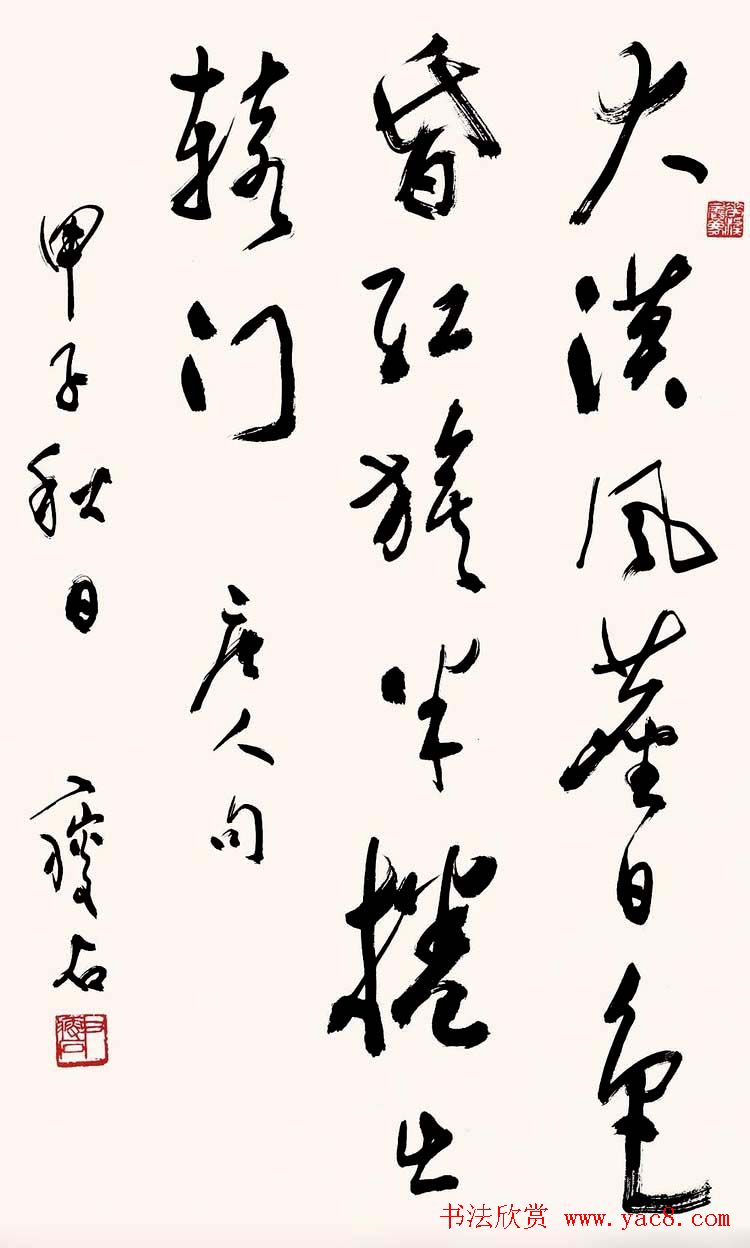 大漠风尘日色
昏红旗半捲出
辕门
唐人句
甲子秋日
瘦石
书法欣赏 www.yac8.com